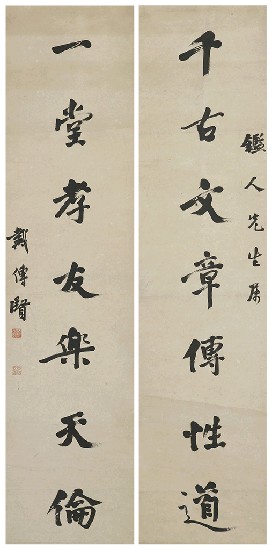 鑑人先生屬
千古文章傳性道
一堂孝友樂天倫
戴傳賢